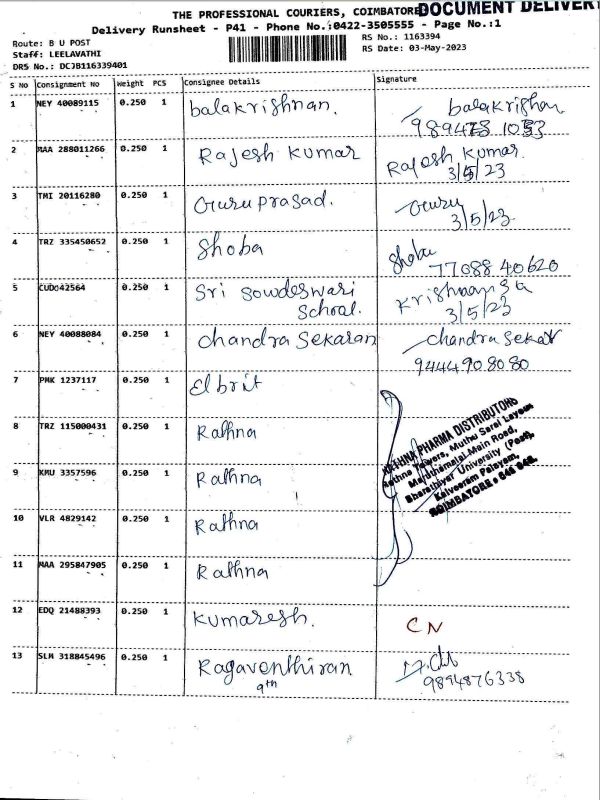 THE PROFESSIONAL COURIERS, COIMBATORE
DOCUMENT DELIVERY
Delivery Runsheet - P41 - Phone No.:0422-3505555 - Page No.:1
Route: B U POST
Staff: LEELAVATHI
DRS No.: DCJB116339401
RS No.: 1163394
RS Date: 03-May-2023
S No Consignment No Weight PCS Consignee Details Signature
1 NEY 40089115 0.250 1 balakrishnan. balakrishan
2 MAA 288011266 0.250 1 Rajesh Kumar Rajesh Kumar
3/5/23
3 TMI 20116280 0.250 1 Guru prasad. Guru
3/5/23
4 TRZ 335450652 0.250 1 Shoba Shoba
77088 40620
5 CUD042564 0.250 1 Sri Sowdeswari
School.
3/5/23
6 NEY 40088084 0.250 1 Chandra Sekaran Chandra Sekar
9444908080
7 PMK 1237117 0.250 1 Elbrit
8 TRZ 115000431 0.250 1 Rathna
9 KMU 3357596 0.250 1 Rathna
10 VLR 4829142 0.250 1 Rathna
11 MAA 295847905 0.250 1 Rathna
RATHNA PHARMA DISTRIBUTORS
Rathna Towers, Muthu Sarai Layout
Maruthamalai Main Road,
Bharathiyar University (Post),
Kalveeram Palayam,
COIMBATORE - 641 046.
12 EDQ 21488393 0.250 1 Kumaresh. CN
13 SLM 318845496 0.250 1 Ragaventhiran
9th
9894876338